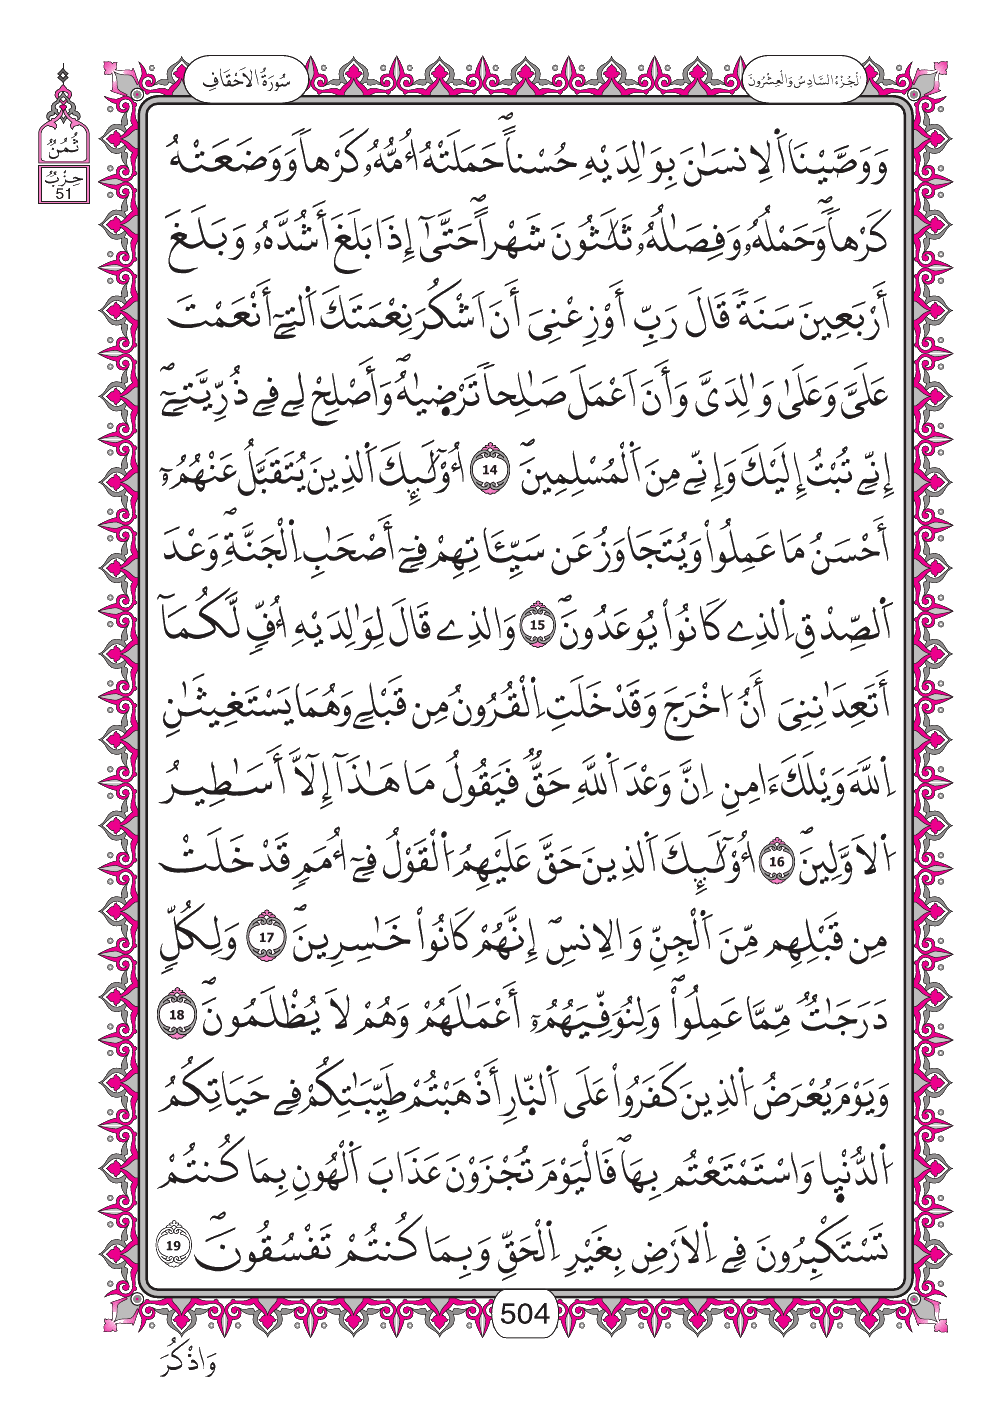 الجُزْءُ السَّادِسُ وَالْعِشْرُونَ
سُورَةُ الاَحْقَافِ
ثُمُنُ
حِزْبُ
51
وَوَصَّيْنَا اَ۬لِانسَٰنَ بِوَٰلِدَيْهِ حُسْناًۖ حَمَلَتْهُ أُمُّهُۥ كَرْهاٗ وَوَضَعَتْهُ
كَرْهاٗۖ وَحَمْلُهُۥ وَفِصَٰلُهُۥ ثَلَٰثُونَ شَهْراًۖ حَتَّىٰٓ إِذَا بَلَغَ أَشُدَّهُۥ وَبَلَغَ
أَرْبَعِينَ سَنَةٗ قَالَ رَبِّ أَوْزِعْنِيَ أَنَ اَشْكُرَ نِعْمَتَكَ اَ۬لتِےٓ أَنْعَمْتَ
عَلَيَّ وَعَلَىٰ وَٰلِدَيَّ وَأَنَ اَعْمَلَ صَٰلِحاٗ تَرْضۭيٰهُۖ وَأَصْلِحْ لِے فِے ذُرِّيَّتِيَۖ
إِنِّے تُبْتُ إِلَيْكَ وَإِنِّے مِنَ اَ۬لْمُسْلِمِينَۖ 14 أُوْلَٰٓئِكَ اَ۬لذِينَ يُتَقَبَّلُ عَنْهُمُۥٓ
أَحْسَنُ مَا عَمِلُواْ وَيُتَجَاوَزُ عَن سَيِّـَٔاتِهِمْ فِےٓ أَصْحَٰبِ اِ۬لْجَنَّةِۖ وَعْدَ
اَ۬لصِّدْقِ اِ۬لذِے كَانُواْ يُوعَدُونَۖ 15 وَالذِے قَالَ لِوَٰلِدَيْهِ أُفّٖ لَّكُمَآ
أَتَعِدَٰنِنِيَ أَنُ ا۟خْرَجَ وَقَدْ خَلَتِ اِ۬لْقُرُونُ مِن قَبْلِے وَهُمَا يَسْتَغِيثَٰنِ
اِ۬للَّهَ وَيْلَكَ ءَامِنِ اِنَّ وَعْدَ اَ۬للَّهِ حَقّٞۖ فَيَقُولُ مَا هَٰذَآ إِلَّآ أَسَٰطِيرُ
اُ۬لَاوَّلِينَۖ 16 أُوْلَٰٓئِكَ اَ۬لذِينَ حَقَّ عَلَيْهِمُ اُ۬لْقَوْلُ فِےٓ أُمَمٖ قَدْ خَلَتْ
مِن قَبْلِهِم مِّنَ اَ۬لْجِنِّ وَالِانسِۖ إِنَّهُمْ كَانُواْ خَٰسِرِينَۖ 17 وَلِكُلّٖ
دَرَجَٰتٞ مِّمَّا عَمِلُواْۖ وَلِنُوَفِّيَهُمُۥٓ أَعْمَٰلَهُمْ وَهُمْ لَا يُظْلَمُونَۖ 18
وَيَوْمَ يُعْرَضُ اُ۬لذِينَ كَفَرُواْ عَلَى اَ۬لنّ۪ارِ أَذْهَبْتُمْ طَيِّبَٰتِكُمْ فِے حَيَاتِكُمُ
اُ۬لدُّنْي۪ا وَاسْتَمْتَعْتُم بِهَاۖ فَالْيَوْمَ تُجْزَوْنَ عَذَابَ اَ۬لْهُونِ بِمَا كُنتُمْ
تَسْتَكْبِرُونَ فِے اِ۬لَارْضِ بِغَيْرِ اِ۬لْحَقِّ وَبِمَا كُنتُمْ تَفْسُقُونَۖ 19
504
وَاذْكُرَ